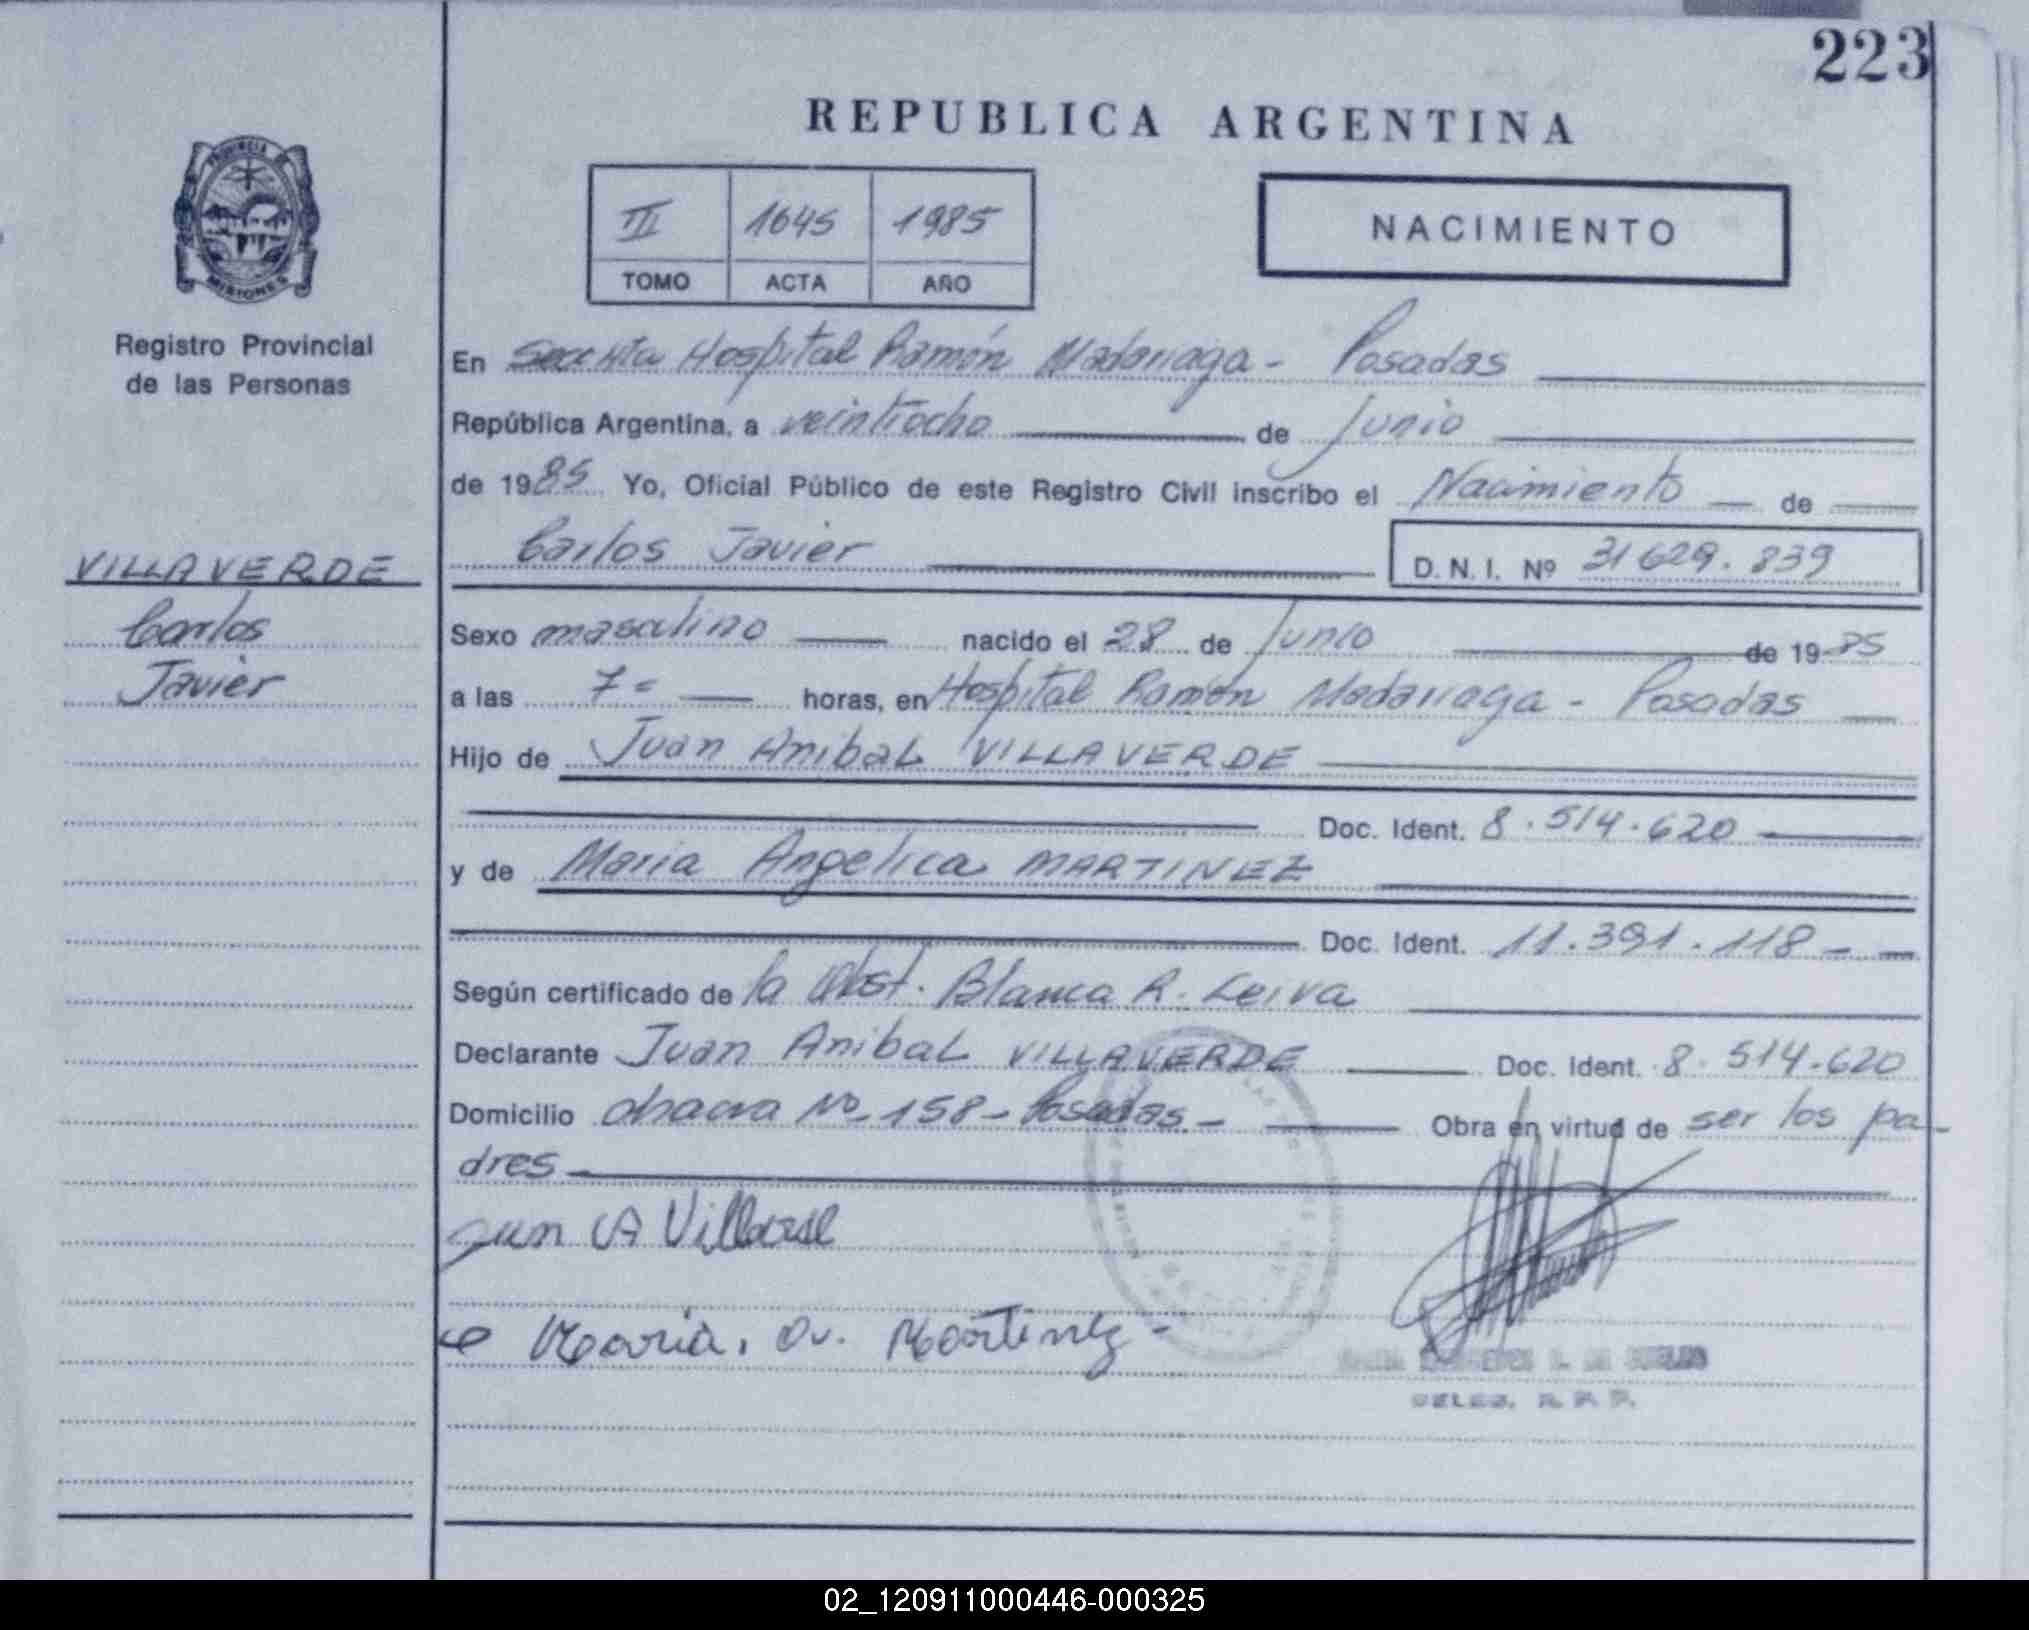 223
REPUBLICA ARGENTINA
PROVINCIA DE
MISIONES
Registro Provincial
de las Personas
III 1645 1985
TOMO ACTA AÑO
NACIMIENTO
En Hospital Ramón Madariaga - Posadas
República Argentina, a veintiocho de Junio
de 1985 Yo, Oficial Público de este Registro Civil inscribo el Nacimiento de
Carlos Javier D.N.I. Nº 31629.839
VILLAVERDE
Carlos
Javier
Sexo masculino nacido el 28 de Junio de 1985
a las 7= horas, en Hospital Ramón Madariaga - Posadas
Hijo de Juan Anibal VILLAVERDE
Doc. Ident. 8.514.620
y de Maria Angelica MARTINEZ
Doc. Ident. 11.391.118-
Según certificado de la Obst. Blanca R. Leiva
Declarante Juan Anibal VILLAVERDE Doc. Ident. 8.514.620
Domicilio chacra Nº 158 - Posadas - Obra en virtud de ser los pa-
dres
Juan A
Maria, A. Martinez -
02_120911000446-000325